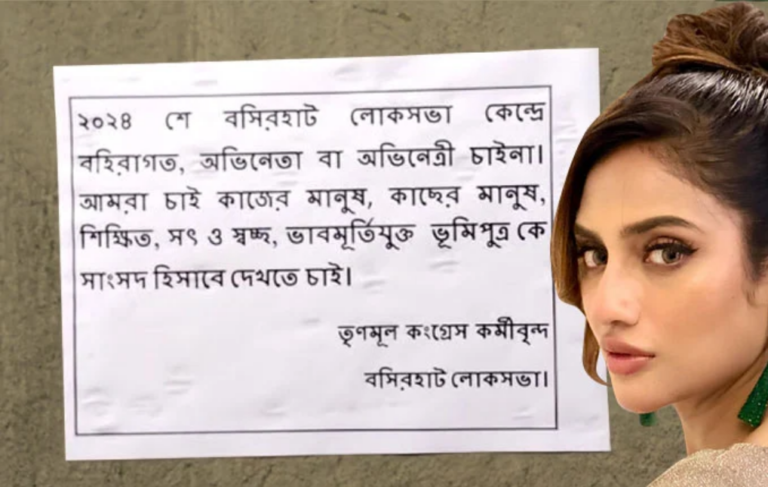 ২০২৪ শে বসিরহাট লোকসভা কেন্দ্রে
বহিরাগত, অভিনেতা বা অভিনেত্রী চাইনা।
আমরা চাই কাজের মানুষ, কাছের মানুষ,
শিক্ষিত, সৎ ও স্বচ্ছ, ভাবমূর্তিযুক্ত ভূমিপুত্র কে
সাংসদ হিসাবে দেখতে চাই।
তৃণমূল কংগ্রেস কর্মীবৃন্দ
বসিরহাট লোকসভা।